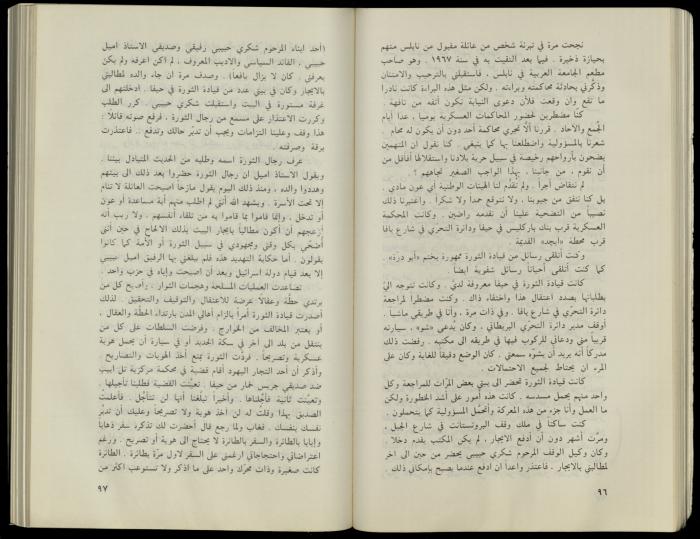 نجحت مرة في تبرئة شخص من عائلة مقبول من نابلس متهم
بحيازة ذخيرة . فيما بعد التقيت به في سنة ١٩٦٧ . وهو صاحب
مطعم الجامعة العربية في نابلس ، فاستقبلني بالترحيب والامتنان
وذكّرني بحادثة محاكمته وبراءته . ولكن مثل هذه البراءة كانت نادرا
ما تقع وان وقعت فلأن دعوى النيابة تكون أتفه من تافهة .
كنا مضطرين لحضور المحاكمات العسكرية يوميا ، عدا أيام
الجُمع والآحاد . قررنا ألّا تجري محاكمة أحد دون أن يكون له محام .
شعرنا بالمسؤولية واضطلعنا بها كما ينبغي . كنا نقول ان المتهمين
يضحون بأرواحهم رخيصة في سبيل حرية بلادنا واستقلالها أفأقل من
أن نقوم ، من جانبنا ، بهذا الواجب الصغير تجاههم ؟
لم نتقاض أجراً . ولم تقدّم لنا الهيئات الوطنية أي عون مادي .
بل كنا ننفق من جيوبنا . ولا نتوقع حمدا ولا شكراً . واعتبرنا ذلك
نصيباً من التضحية علينا أن نقدمه راضين . وكانت المحكمة
العسكرية قرب بنك باركليس في حيفا ودائرة التحري في شارع يافا
قرب محطة «ايجد» القديمة .
وكنت أتلقى رسائل من قيادة الثورة ممهورة بختم «أبو درة» .
كما كنت أتلقى أحياناً رسائل شفوية ايضا .
كانت قيادة الثورة في حيفا معروفة لديّ . وكانت تتوجه اليّ
بطلباتها بصدد اعتقال هذا واختفاء ذاك . وكنت مضطراً لمراجعة
دائرة التحرّي في شارع يافا . وفي ذات مرة ، وأنا في طريقي ماشياً .
أوقف مدير دائرة التحرّي البريطاني ، وكان يُدعى «شو» ، سيارته
قريباً مني ودعاني للركوب فيها في طريقه الى مكتبه . رفضت ذلك
مدركاً أنه يريد أن يشوّه سمعتي . كان الوضع دقيقا للغاية وكان على
المرء ان يحتاط لجميع الاحتمالات .
كانت قيادة الثورة تحضر الى بيتي بعض المرّات للمراجعة وكل
واحد منهم يحمل مسدسه . كانت هذه أمور على أشد الخطورة ولكن
ما العمل وأنا جزء من هذه المعركة وأتحمّل المسؤولية كما يتحملون .
كنت ساكناً في ملك وقف البروتستانت في شارع الجبل ،
ومرّت أشهر دون أن أدفع الايجار ، لم يكن المكتب يقدم دخلا .
وكان وكيل الوقف المرحوم شكري حبيبي يحضر من حين الى آخر
لمطالبتي بالايجار . فأعتذر واعداً ان ادفع عندما يصبح بإمكاني ذلك .
٩٦
(أحد ابناء المرحوم شكري حبيبي رفيقي وصديقي الاستاذ اميل
حبيبي ، القائد السياسي والأديب المعروف ، لم أكن اعرفه ولم يكن
يعرفني . كان لا يزال يافعاً) . وصدف مرة ان جاء والده لمطالبتي
بالايجار وكان في بيتي عدد من قيادة الثورة في حيفا . ادخلتهم الى
غرفة مستورة في البيت واستقبلت شكري حبيبي . كرر الطلب
وكررت الاعتذار على مسمع من رجال الثورة ، فرفع صوته قائلا :
هذا وقف وعلينا التزامات ويجب أن تدبّر حالك وتدفع .. فاعتذرت
برقة وصرفته .
عرف رجال الثورة اسمه وطلبه من الحديث المتبادل بيننا .
ويقول الاستاذ اميل ان رجال الثورة حضروا بعد ذلك الى بيتهم
وهددوا والده ، ومنذ ذلك اليوم يقول مازحاً اصبحت العائلة لا تنام
إلا تحت الأسرة . ويشهد الله أنني لم اطلب منهم أية مساعدة أو عون
أو تدخل ، وإنما قاموا بما قاموا به من تلقاء أنفسهم . ولا ريب انه
أزعجهم أن أكون مطالباً بايجار البيت بذلك الالحاح في حين أنني
أضحّي بكل وقتي ومجهودي في سبيل الثورة أو الأمة كما كانوا
يقولون . أما حكاية التهديد هذه فلم يبلغني بها الرفيق اميل حبيبي
إلا بعد قيام دولة اسرائيل وبعد أن اصبحت وإياه في حزب واحد .
تصاعدت العمليات المسلحة وهجمات الثوار . وأصبح كل من
يرتدي حطّة وعقالا عرضة للاعتقال والتوقيف والتحقيق . لذلك
أصدرت قيادة الثورة أمراً بالزام أهالي المدن بارتداء الحطّة والعقال ،
أو يعتبر المخالف من الخوارج . وفرضت السلطات على كل من
ينتقل من بلد الى آخر في سكة الحديد أو في سيارة أن يحمل هوية
عسكرية وتصريحاً . فردّت الثورة بمنع أخذ الهويات والتصاريح .
وأذكر أن أحد التجار اليهود أقام قضية في محكمة مركزية تل ابيب
ضد صديقي جريس خمار من حيفا . تعيّنت القضية فطلبنا تأجيلها .
وتعيّنت ثانية فأجّلناها . وأخيراً تبلّغنا أنها لن تتأجّل . فأعلمت
الصديق بهذا وقلت له لن آخذ هوية ولا تصريحاً وعليك أن تدبّر
نفسك بنفسك . فغاب ولما رجع قال أحضرت لك تذكرة سفر ذهابا
وإيابا بالطائرة والسفر بالطائرة لا يحتاج الى هوية أو تصريح . ورغم
اعتراضاتي واحتجاجاتي ارغمني على السفر لأول مرّة بطائرة . الطائرة
كانت صغيرة وذات محرّك واحد على ما اذكر ولا تستوعب أكثر من
٩٧